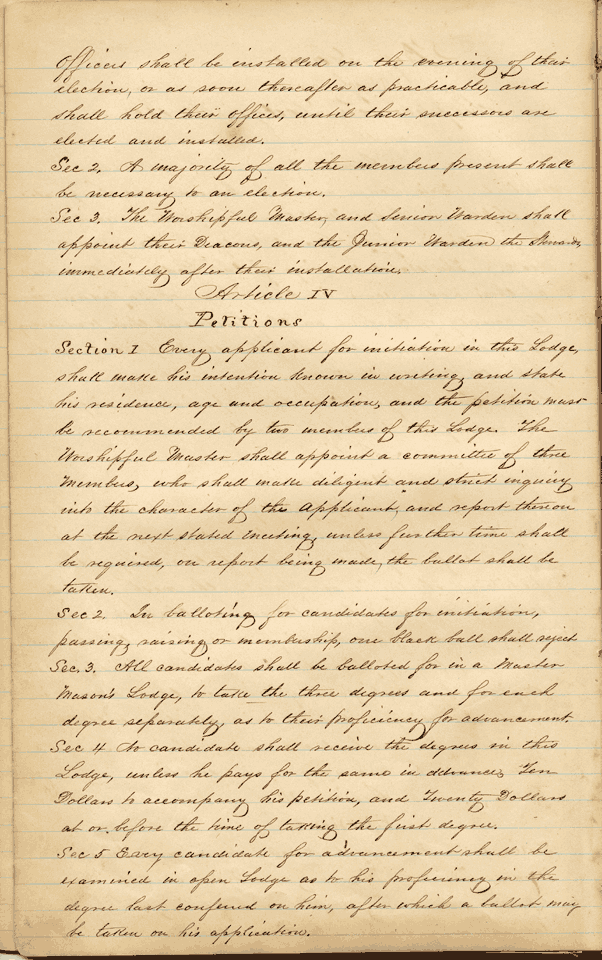 Officers shall be installed on the evening of their
election, or as soon thereafter as practicable, and
shall hold their offices, until their successors are
elected and installed.
Sec 2. A majority of all the members present shall
be necessary to an election.
Sec 3. The Worshipful Master, and Senior Warden shall
appoint their Deacons, and the Junior Warden the Stewards,
immediately after their installation.
Article IV
Petitions
Section 1 Every applicant for initiation in this Lodge,
shall make his intention known in writing, and state
his residence, age and occupation, and the petition must
be recommended by two members of this Lodge. The
Worshipful Master shall appoint a committee of three
Members, who shall make diligent and strict inquiry
into the character of the applicant, and report thereon
at the next stated meeting, unless further time shall
be required, on report being made, the ballot shall be
taken.
Sec 2. In balloting for candidates for initiation,
passing, raising or membership, one black ball shall reject
Sec. 3. All candidates shall be balloted for in a Master
Mason's Lodge, to take the three degrees and for each
degree separately, as to their proficiency for advancement.
Sec 4 No candidate shall receive the degrees in this
Lodge, unless he pays for the same in advance, Ten
Dollars to accompany his petition, and Twenty Dollars
at or before the time of taking the first degree.
Sec 5 Every candidate for advancement shall be
examined in open Lodge as to his proficiency in the
degree last confered on him, after which a ballot may
be taken on his application.